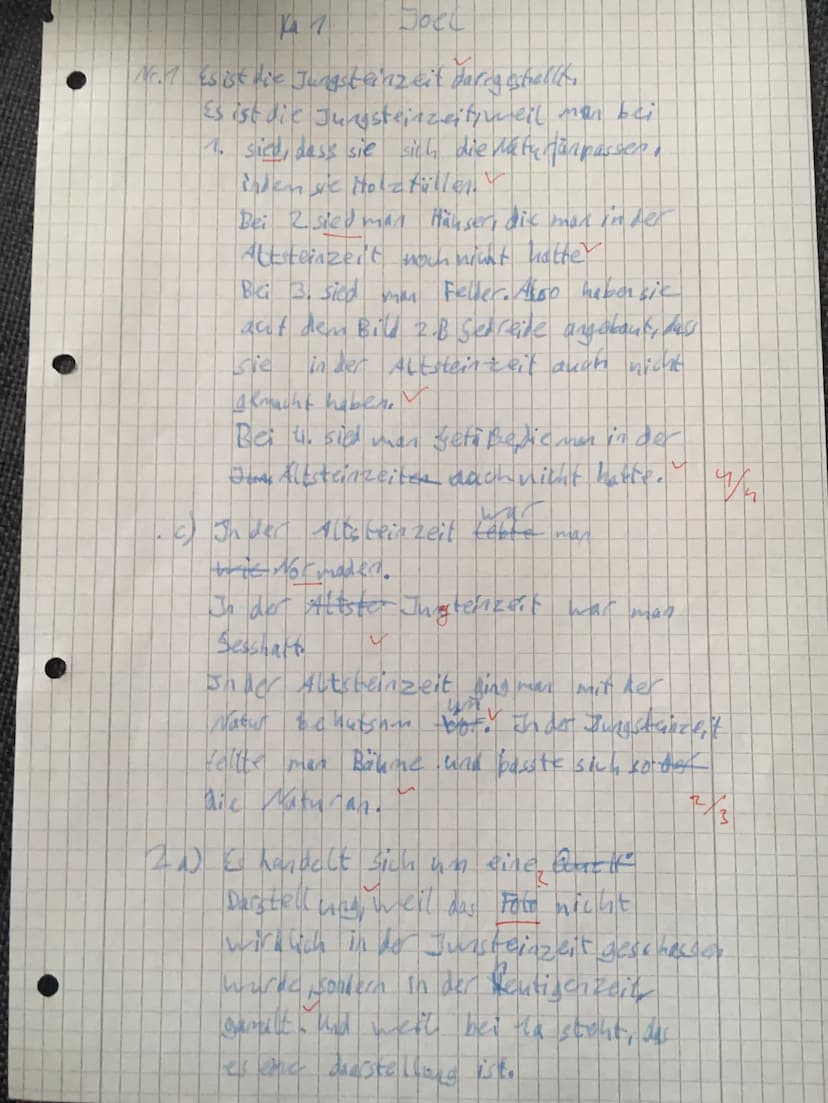 Ka 1 Joel
Nr. 1 Es ist die Jungsteinzeit darrgestellt.
Es ist die Jungsteinzeit, weil man bei
1. sied, dass sie sich die Natur anpassen,
inden sie Holz fällen.
Bei 2 sied man Häuser, die man in der
Altsteinzeit noch nicht hatte
Bei 3. sied man Felder. Also haben sie
auf dem Bild z.B Getreide angebaut, das
sie in der Altsteinzeit auch nicht
gemacht haben.
Bei 4. sied man Gefäße, die man in der
Altsteinzeit auch nicht hatte. 4/4
c) In der Altsteinzeit war man
Normaden.
In der Jungteinzeit war man
Sesshaft.
In der Altsteinzeit ging man mit der
Natur behutsam um. In der Jungsteinzeit
fellte man Bäume und passte sich so
die Natur an. 2/3
2 a) Es handelt sich um eine
Darstellung, weil das Foto nicht
wirklich in der Jungsteinzeit geschossen
wurde, sondern in der heutigen Zeit
gemalt. Und weil bei 1a steht, das
es eine daarstellung ist.